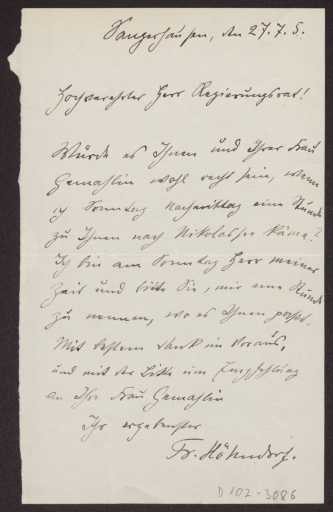 Sangerhausen, den 27.7.5.
Hochverehrter Herr Regierungsrat!
Würde es Ihnen und Ihrer Frau
Gemahlin wohl recht sein, wenn
ich Sonntag Nachmittag eine Stunde
zu Ihnen nach Nikolassee käme?
Ich bin am Sonntag Herr meiner
Zeit und bitte Sie, mir eine Stunde
zu nennen, wo es Ihnen passt.
Mit bestem Dank im Voraus,
und mit der Bitte um Empfehlung
an Ihre Frau Gemahlin
Ihr ergebenster
Fr. Höhndorf.
D 102-3086